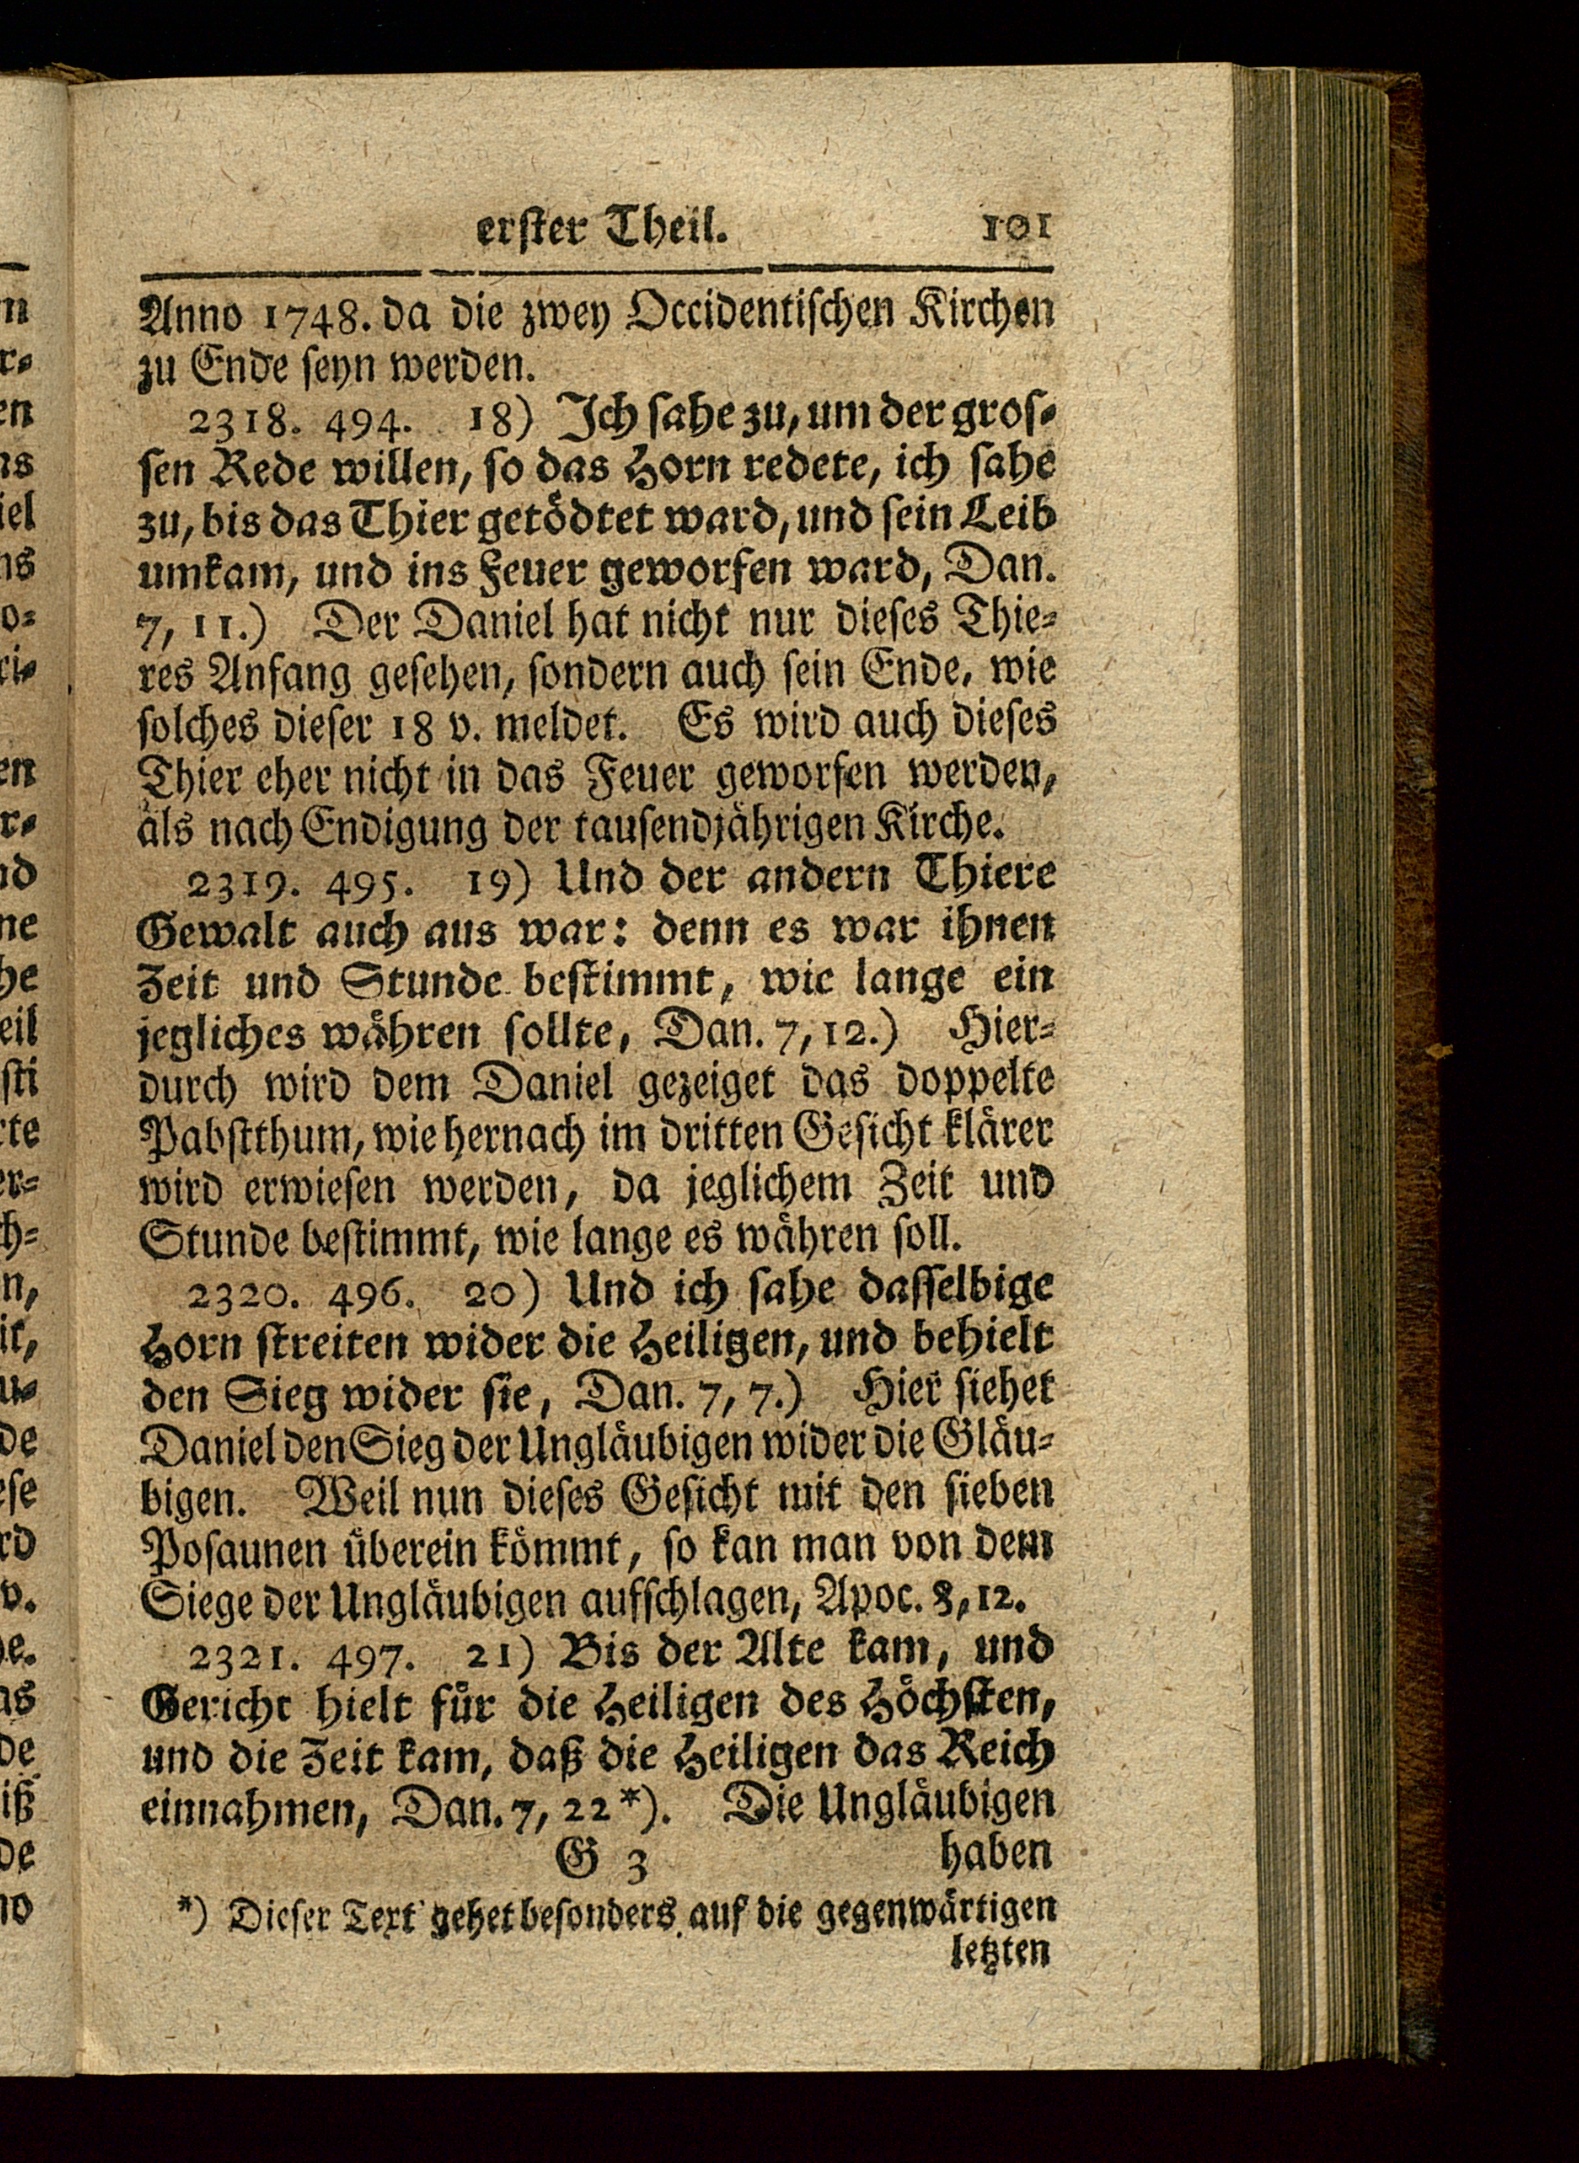 erster Theil. 101
Anno 1748. da die zwey Occidentischen Kirchen
zu Ende seyn werden.
2318. 494. 18) Ich sahe zu, um der gros-
sen Rede willen, so das Horn redete, ich sahe
zu, bis das Thier getödtet ward, und sein Leib
umkam, und ins Feuer geworfen ward, Dan.
7, 11.) Der Daniel hat nicht nur dieses Thie-
res Anfang gesehen, sondern auch sein Ende, wie
solches dieser 18 v. meldet. Es wird auch dieses
Thier eher nicht in das Feuer geworfen werden,
als nach Endigung der tausendjährigen Kirche.
2319. 495. 19) Und der andern Thiere
Gewalt auch aus war: denn es war ihnen
Zeit und Stunde bestimmt, wie lange ein
jegliches währen sollte, Dan. 7, 12.) Hier-
durch wird dem Daniel gezeiget das doppelte
Pabstthum, wie hernach im dritten Gesicht klärer
wird erwiesen werden, da jeglichem Zeit und
Stunde bestimmt, wie lange es währen soll.
2320. 496. 20) Und ich sahe dasselbige
Horn streiten wider die Heiligen, und behielt
den Sieg wider sie, Dan. 7, 7.) Hier siehet
Daniel den Sieg der Ungläubigen wider die Gläu-
bigen. Weil nun dieses Gesicht mit den sieben
Posaunen überein kömmt, so kan man von dem
Siege der Ungläubigen aufschlagen, Apoc. 8, 12.
2321. 497. 21) Bis der Alte kam, und
Gericht hielt für die Heiligen des Höchsten,
und die Zeit kam, daß die Heiligen das Reich
einnahmen, Dan. 7, 22 *). Die Ungläubigen
G 3 haben
*) Dieser Text gehet besonders auf die gegenwärtigen
letzten